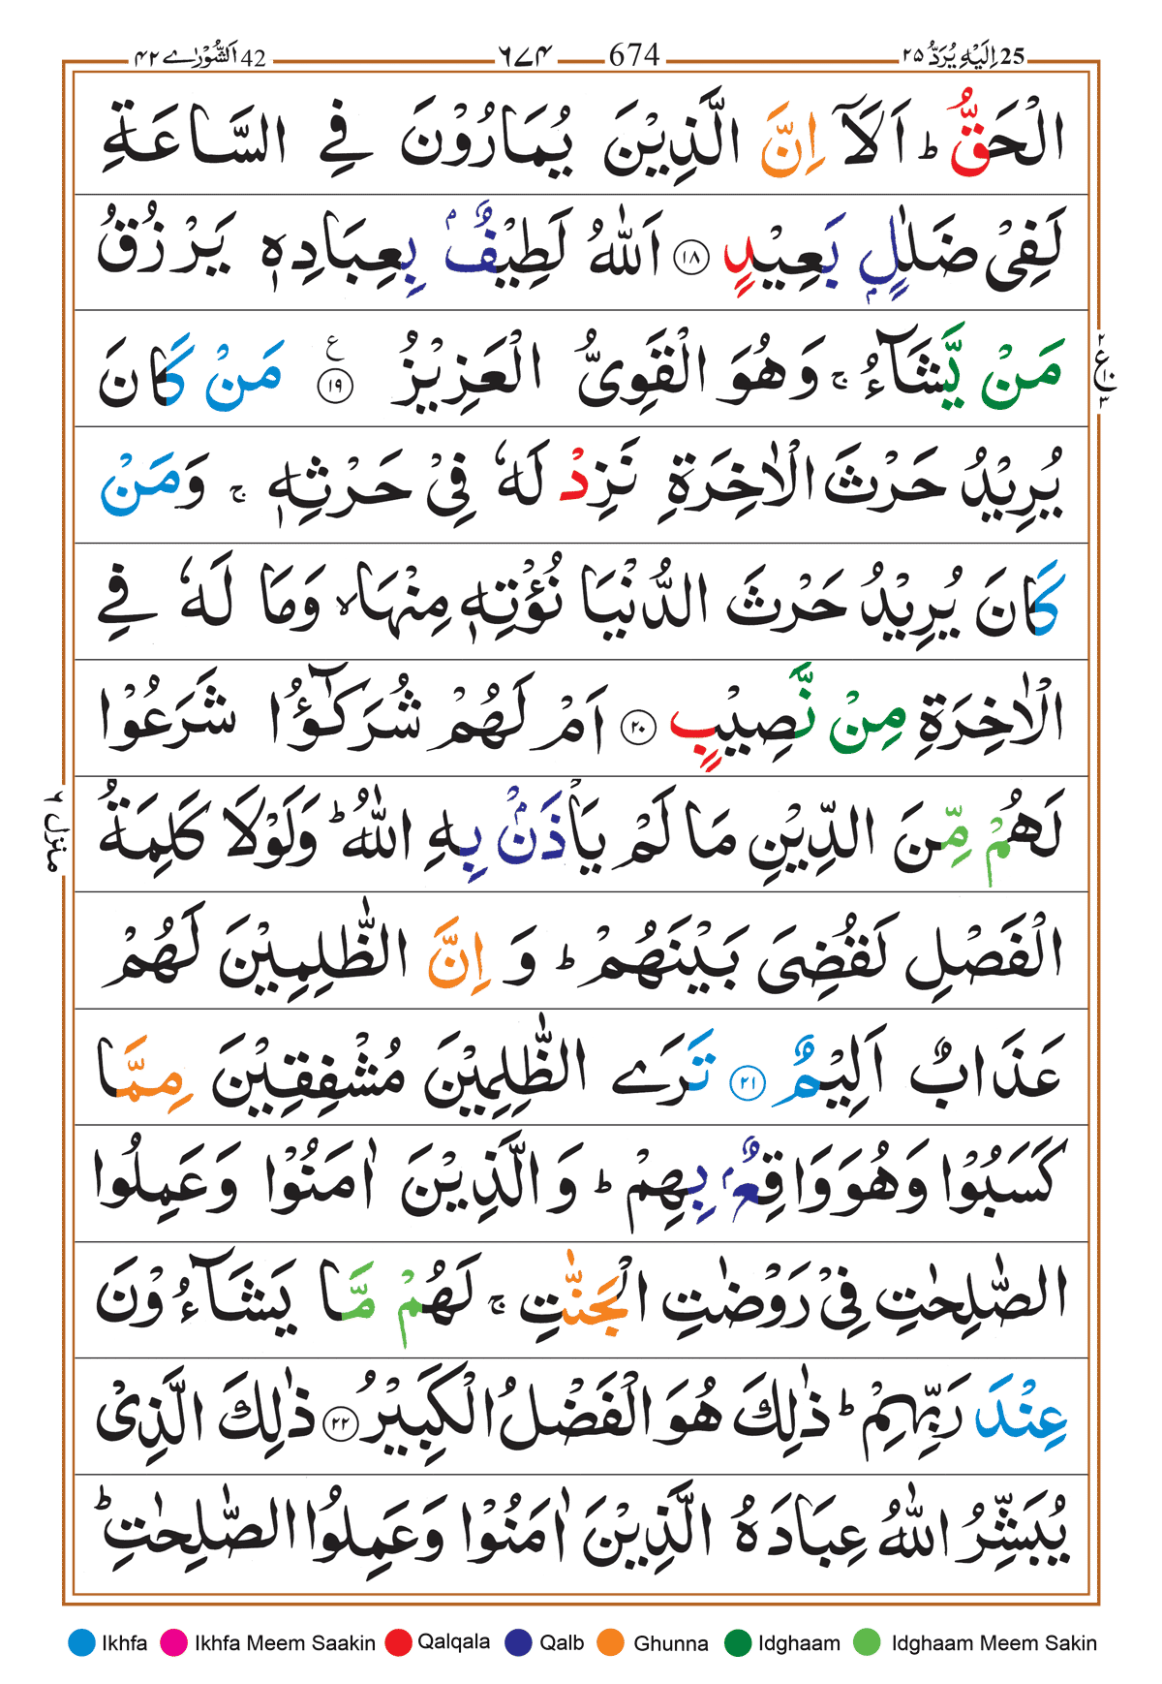 25 اِلَيْهِ يُرَدُّ ٢٥ 674 ٦٧٤ 42 اَلشُّوْرٰے ٤٢
الْحَقُّ ؕ اَلَاۤ اِنَّ الَّذِيْنَ يُمَارُوْنَ فِي السَّاعَةِ
لَفِيْ ضَلٰلٍۭ بَعِيْدٍ ١٨ اَللّٰهُ لَطِيْفٌۢ بِعِبَادِهٖ يَرْزُقُ
مَنْ يَّشَآءُ ۚ وَهُوَ الْقَوِيُّ الْعَزِيْزُ ١٩ ع مَنْ كَانَ
يُرِيْدُ حَرْثَ الْاٰخِرَةِ نَزِدْ لَهٗ فِيْ حَرْثِهٖ ۚ وَمَنْ
كَانَ يُرِيْدُ حَرْثَ الدُّنْيَا نُؤْتِهٖ مِنْهَا ۙ وَمَا لَهٗ فِي
الْاٰخِرَةِ مِنْ نَّصِيْبٍ ٢٠ اَمْ لَهُمْ شُرَكٰٓؤُا شَرَعُوْا
لَهُمْ مِّنَ الدِّيْنِ مَا لَمْ يَاْذَنْۢ بِهِ اللّٰهُ ؕ وَلَوْلَا كَلِمَةُ
الْفَصْلِ لَقُضِيَ بَيْنَهُمْ ؕ وَ اِنَّ الظّٰلِمِيْنَ لَهُمْ
عَذَابٌ اَلِيْمٌ ٢١ تَرَے الظّٰلِمِيْنَ مُشْفِقِيْنَ مِمَّا
كَسَبُوْا وَهُوَ وَاقِعٌۢ بِهِمْ ؕ وَالَّذِيْنَ اٰمَنُوْا وَعَمِلُوا
الصّٰلِحٰتِ فِيْ رَوْضٰتِ الْجَنّٰتِ ۚ لَهُمْ مَّا يَشَآءُوْنَ
عِنْدَ رَبِّهِمْ ؕ ذٰلِكَ هُوَ الْفَضْلُ الْكَبِيْرُ ٢٢ ذٰلِكَ الَّذِيْ
يُبَشِّرُ اللّٰهُ عِبَادَهُ الَّذِيْنَ اٰمَنُوْا وَعَمِلُوا الصّٰلِحٰتِ ؕ
٢ ع ١٠ ٣
منزل ٦
Ikhfa Ikhfa Meem Saakin Qalqala Qalb Ghunna Idghaam Idghaam Meem Sakin